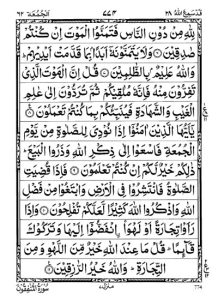 قَدْ سَمِعَ اللّٰهُ ٢٨ ٧٧٤ اَلْجُمُعَة ٦٢
لِلّٰهِ مِنْ دُوْنِ النَّاسِ فَتَمَنَّوُا الْمَوْتَ اِنْ كُنْتُمْ
صٰدِقِيْنَ ۝ وَلَا يَتَمَنَّوْنَهٗٓ اَبَدًۢا بِمَا قَدَّمَتْ اَيْدِيْهِمْ
وَاللّٰهُ عَلِيْمٌۢ بِالظّٰلِمِيْنَ ۝ قُلْ اِنَّ الْمَوْتَ الَّذِيْ
تَفِرُّوْنَ مِنْهُ فَاِنَّهٗ مُلٰقِيْكُمْ ثُمَّ تُرَدُّوْنَ اِلٰى عٰلِمِ
الْغَيْبِ وَالشَّهَادَةِ فَيُنَبِّئُكُمْ بِمَا كُنْتُمْ تَعْمَلُوْنَ ۝
يٰٓاَيُّهَا الَّذِيْنَ اٰمَنُوْٓا اِذَا نُوْدِيَ لِلصَّلٰوةِ مِنْ يَّوْمِ
الْجُمُعَةِ فَاسْعَوْا اِلٰى ذِكْرِ اللّٰهِ وَذَرُوا الْبَيْعَ
ذٰلِكُمْ خَيْرٌ لَّكُمْ اِنْ كُنْتُمْ تَعْلَمُوْنَ ۝ فَاِذَا قُضِيَتِ
الصَّلٰوةُ فَانْتَشِرُوْا فِي الْاَرْضِ وَابْتَغُوْا مِنْ فَضْلِ
اللّٰهِ وَاذْكُرُوا اللّٰهَ كَثِيْرًا لَّعَلَّكُمْ تُفْلِحُوْنَ ۝ وَاِذَا
رَاَوْا تِجَارَةً اَوْ لَهْوَا ۨانْفَضُّوْٓا اِلَيْهَا وَتَرَكُوْكَ
قَآئِمًا ۭ قُلْ مَا عِنْدَ اللّٰهِ خَيْرٌ مِّنَ اللَّهْوِ وَمِنَ
التِّجَارَةِ ۭ وَاللّٰهُ خَيْرُ الرّٰزِقِيْنَ ۝
سُوْرَةُ الْمُنٰفِقُوْنَ